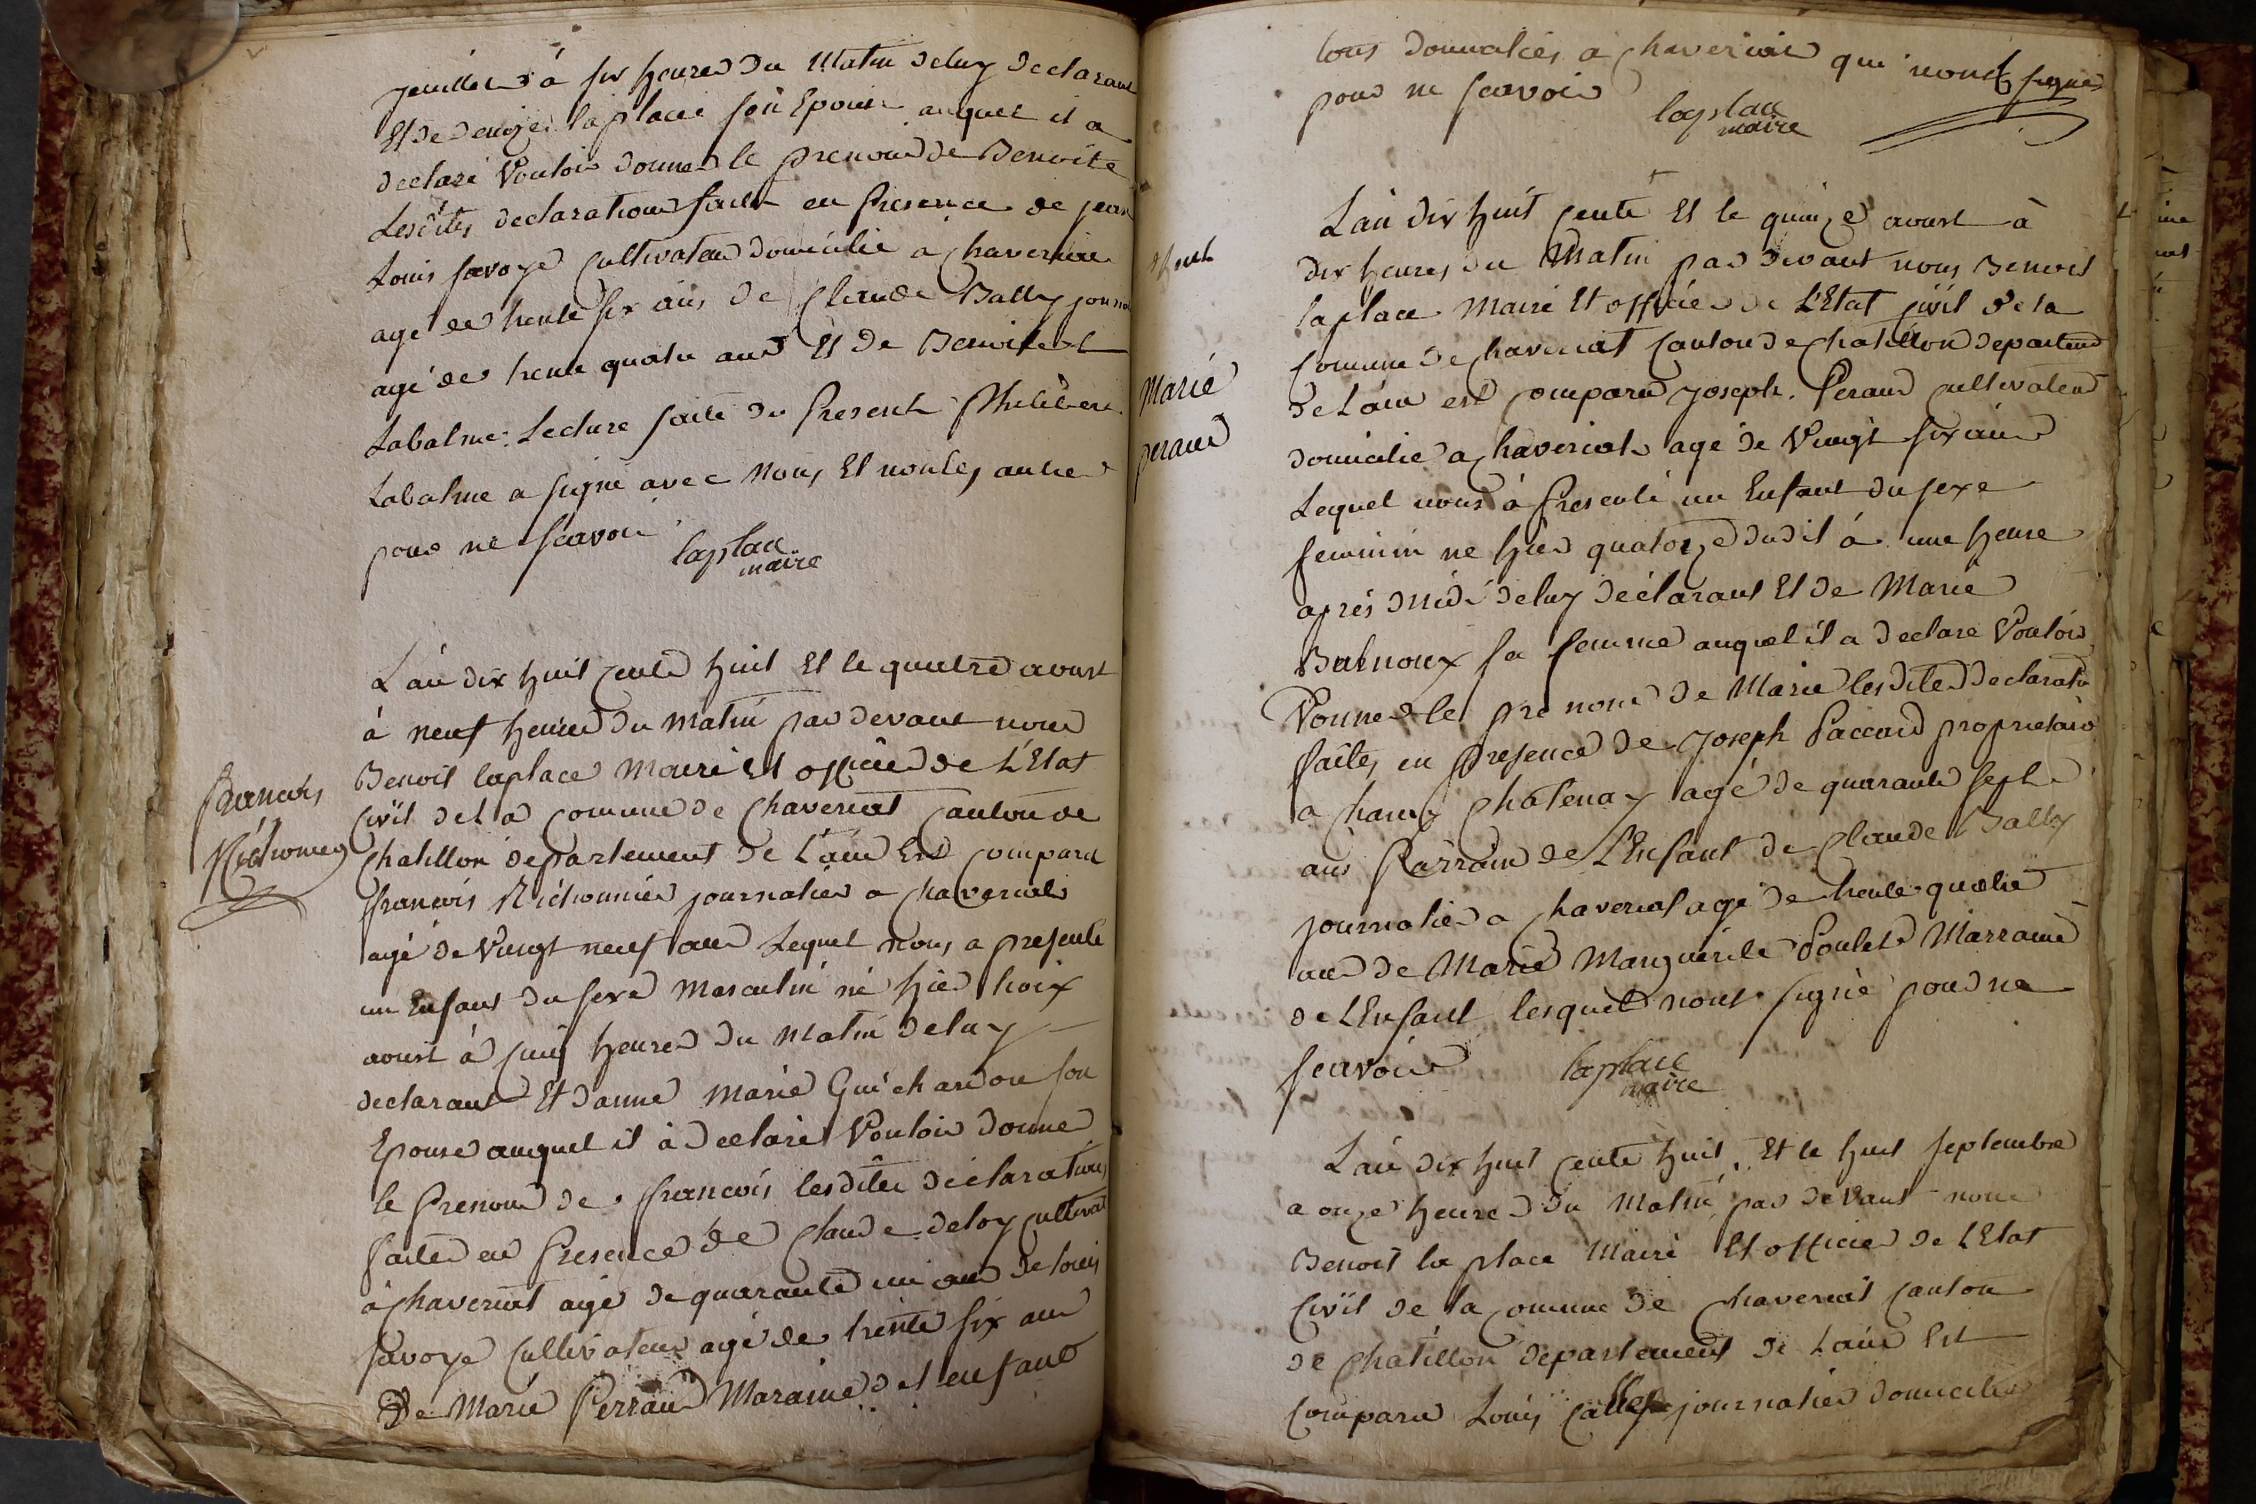 juillet à six heures du Matin deluy declarant
Et de denize laplace son Epouse auquel il a
declaré Vouloir donner le prenom de Benoite
Lesdites declaration faite en Presence de jean
Louis Savoye Cultivateur domicilie a chaveriat
agé de trente six ans de Claude Bally journa
agé de trente quatre ans Et de Benoite
Labalme. Lecture faite du Present Philibert
Labalme a signé avec Nous Et non les autres
pour ne scavoir
laplace
maire
L'an dix huit cents huit Et le quatre aoust
à neuf heures du matin par devant nous
Benoit laplace Maire Et officier de L'Etat
Civil de La Comune de Chaveriat Canton de
Chatillon departement de L'ain Est comparu
francois Nichonnier journalier a chaveriat
agé de Vingt neuf ans Lequel Nous a presenté
un Enfant du sexe Masculin né hier troix
aoust à cinq heures du Matin deluy
declarant Et danne Marie Guichardon son
Epouse auquel il à declaré Vouloir donné
le Prenom de francois lesdites declarations
faites en Presence de Claude deloy cultivat
à chaveriat agé de quarante un ans de louis
Savoye Cultivateur agé de trente six ans
De Marie Perraud Maraine de l enfant
francois
tous domicaliés a chaveriat qui nont signé
pour ne scavoir
laplace
maire
L'an dix huit cents Et le quinze aoust à
dix heures du Matin par devant nous Benoit
laplace Maire Et officier de L'Etat civil de la
Comune de chaveriat Canton de chatillon departem
de L'ain est comparu joseph Peraud cultivateur
domicilié a chaveriat agé de Vingt six ans
Lequel nous à Presenté un Enfant du sexe
feminin ne hier quatorze dudit à une heure
aprés midi deluy déclarant Et de Marie
sa femme auquel il a declaré Vouloir
Donner le prenom de Marie lesdites declaratio
faites en Presence de joseph Paccard proprietaire
a Chatenay agé de quarante sept
ans Parrain de L'Enfant de Claude Bally
journalier a chaveriat agé de trente quatre
ans de Marie Marguerite Poulet Marraine
de L'Enfant lesquel nont signé pour ne
scavoir
laplace
maire
Marie
peraud
L'an dix huit cents huit, Et le huit septembre
a onze heures du Matin par devant nous
Benoit la place Maire Et officier de L'Etat
Civil de la Comune de Chaveriat Canton
de Chatillon departement de L'ain Est
Comparu Louis journalier domicilié